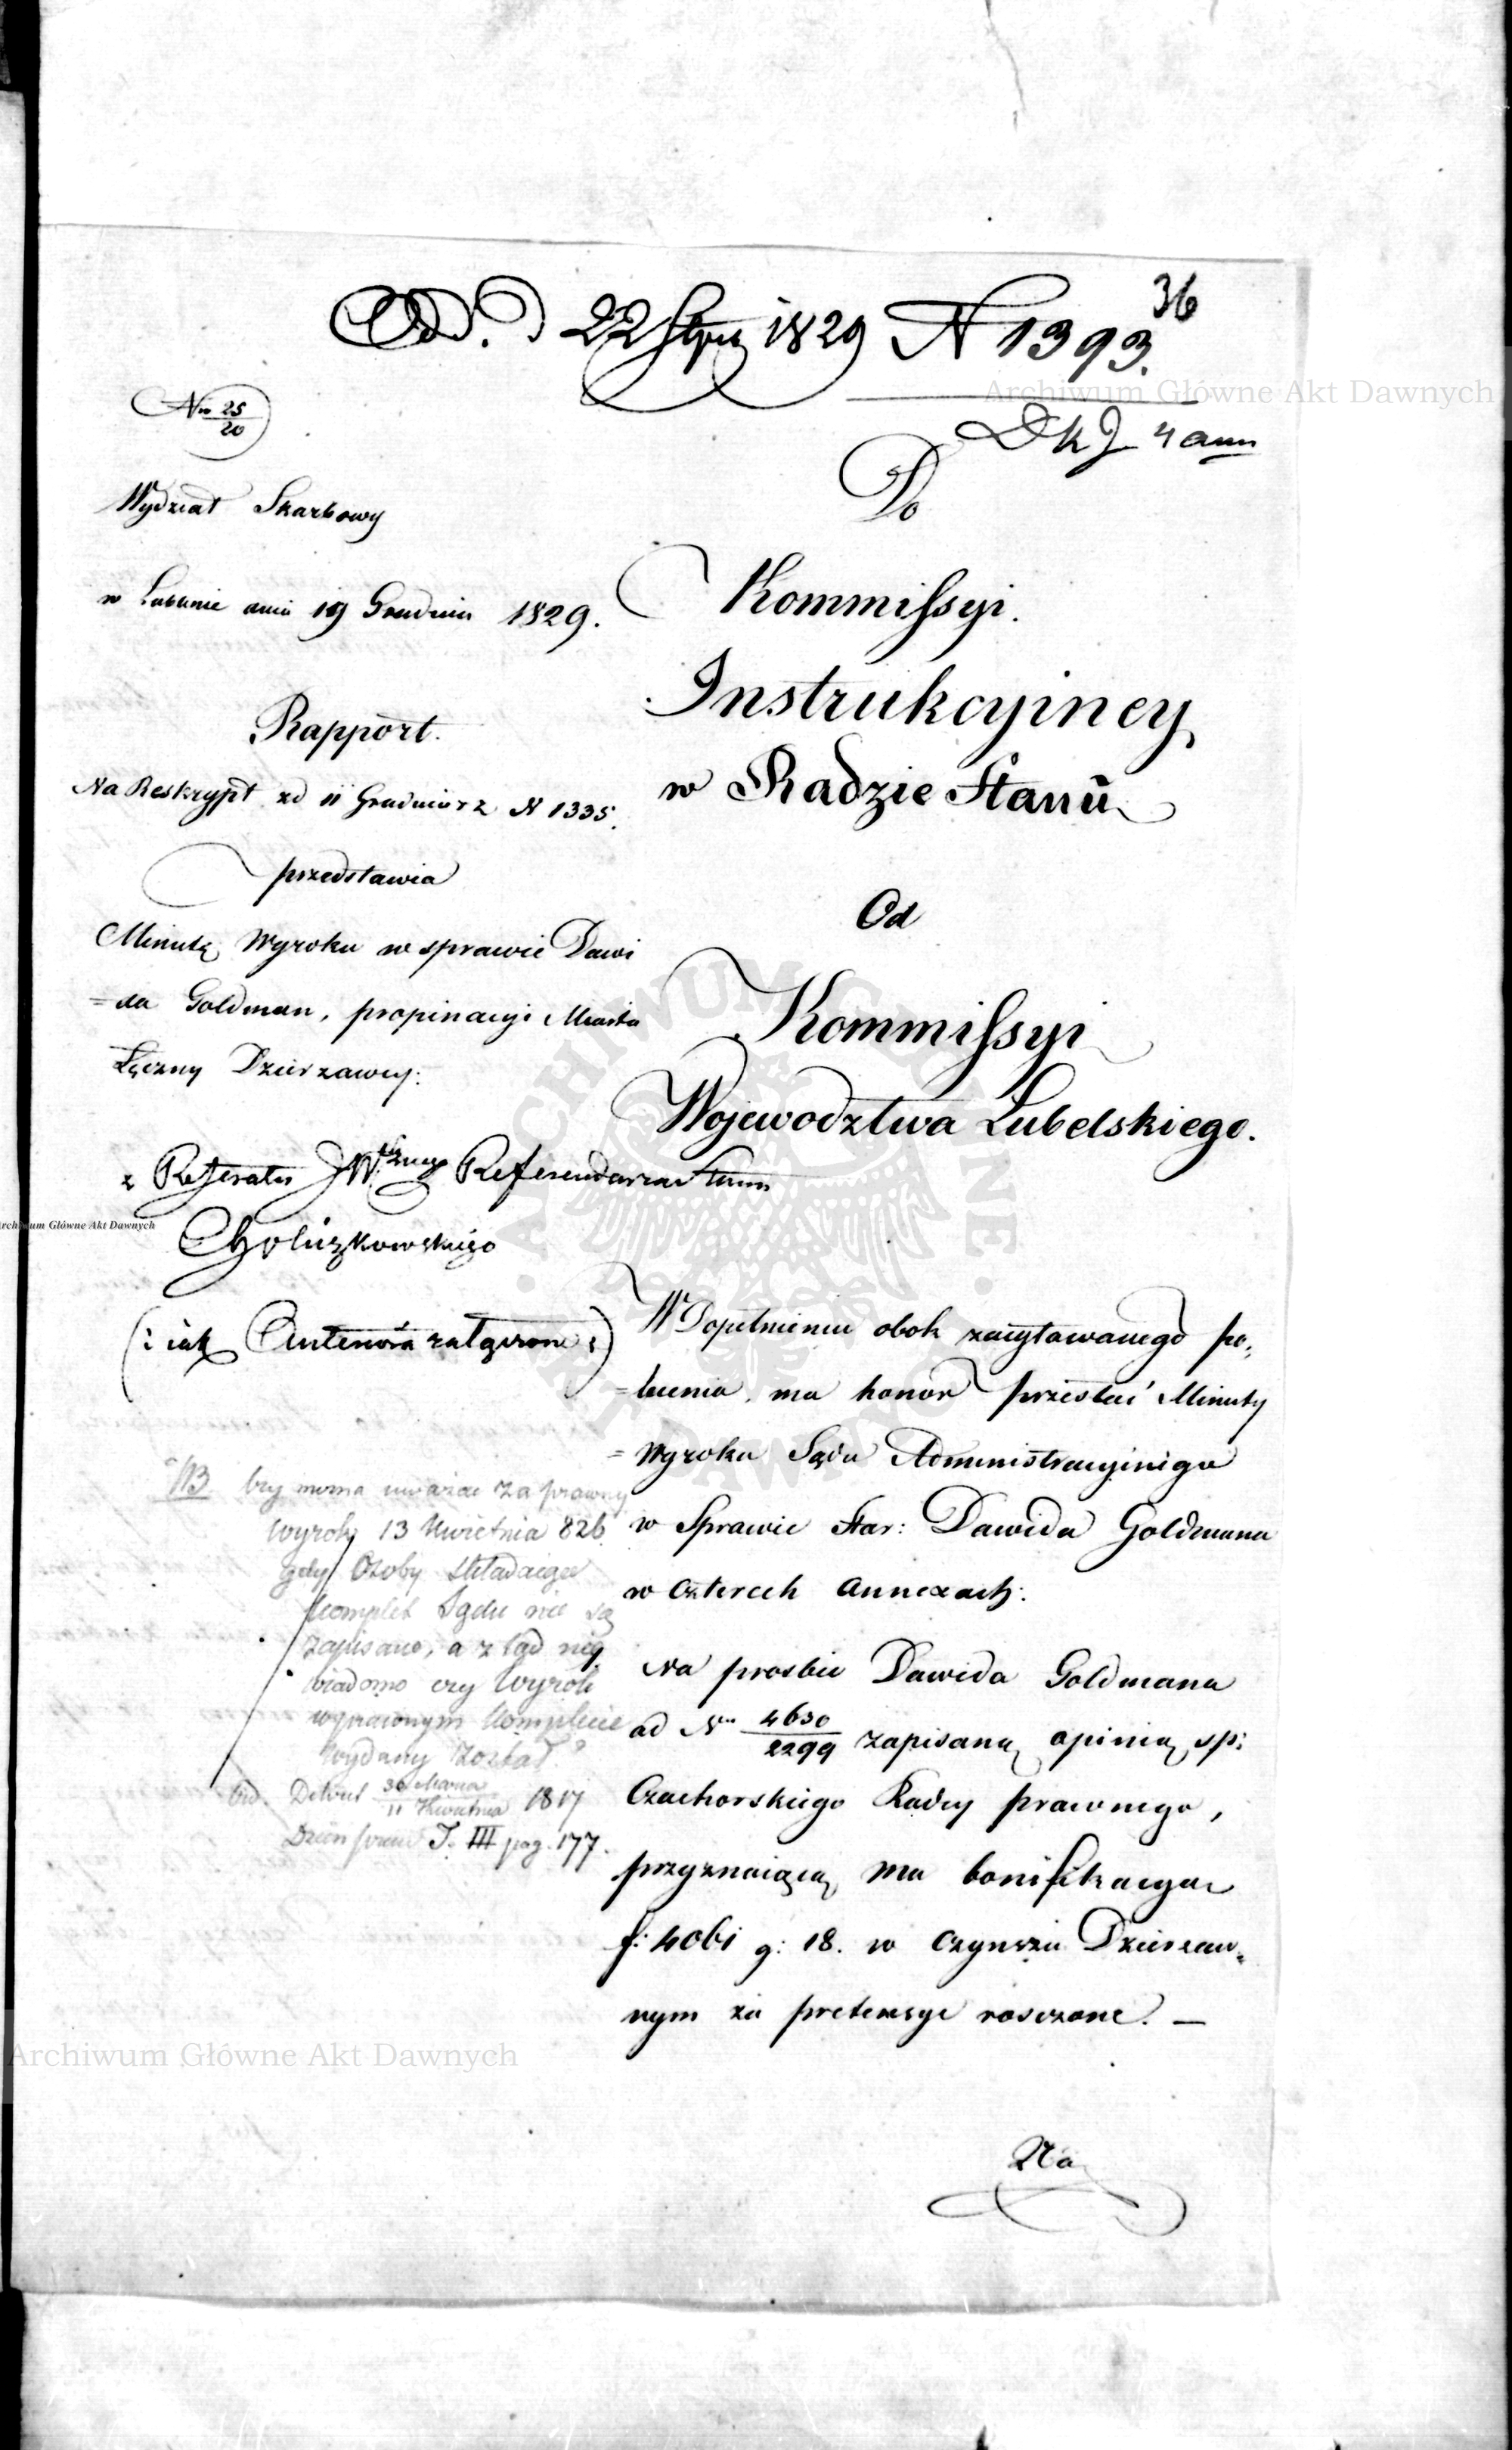 36
Odd. d 22 Stycz 1829 N 1393.
DKJ 4 ann
Nro 25/20
Wydział Skarbowy
w Lublinie dnia 19 Grudnia 1829.
Rapport.
Na Reskrypt zd 11 Grudnia r z N 1335.
przedstawia
Minutę Wyroku w sprawie Dawi
=da Goldman, propinacyi Miasta
Łęczny Dzierzawcy:
z Referatu JW. Referendarza Stanu
(: iak Antenora załączone :)
NB czy można uważać za prawny
wyrok 13 Kwietnia 826
gdy Osoby składaiące
komplet Sądu nie są
zapisane, a z tąd nie
wiadomo czy Wyrok
w prawnym Komplecie
wydany został?
vid. Dekret 30 Marca/11 Kwietnia 1817
Dzien praw T. III pag. 177.
Do
Kommissyi.
Instrukcyiney
w Radzie Stanu
Od
Kommissyi
Wojewodztwa Lubelskiego.
W Dopełnieniu obok zacytowanego po,
=lecenia, ma honor przesłać Minuty
=Wyroku Sądu Administracyinego
w Sprawie Star: Dawida Goldmana
w czterech annexach:
Na prosbie Dawida Goldmana
ad Nrm 4650/2299 zapisaną opinią sp:
Czachorskiego Radcy prawnego,
przyznaiącą mu bonifikacyą
f: 4061 g: 18. w czynszu Dzierzaw=
nym za pretensye rosczone. —
Na
Archiwum Główne Akt Dawnych
Archiwum Główne Akt Dawnych
Archiwum Główne Akt Dawnych
ARCHIWUM GŁÓWNE AKT DAWNYCH